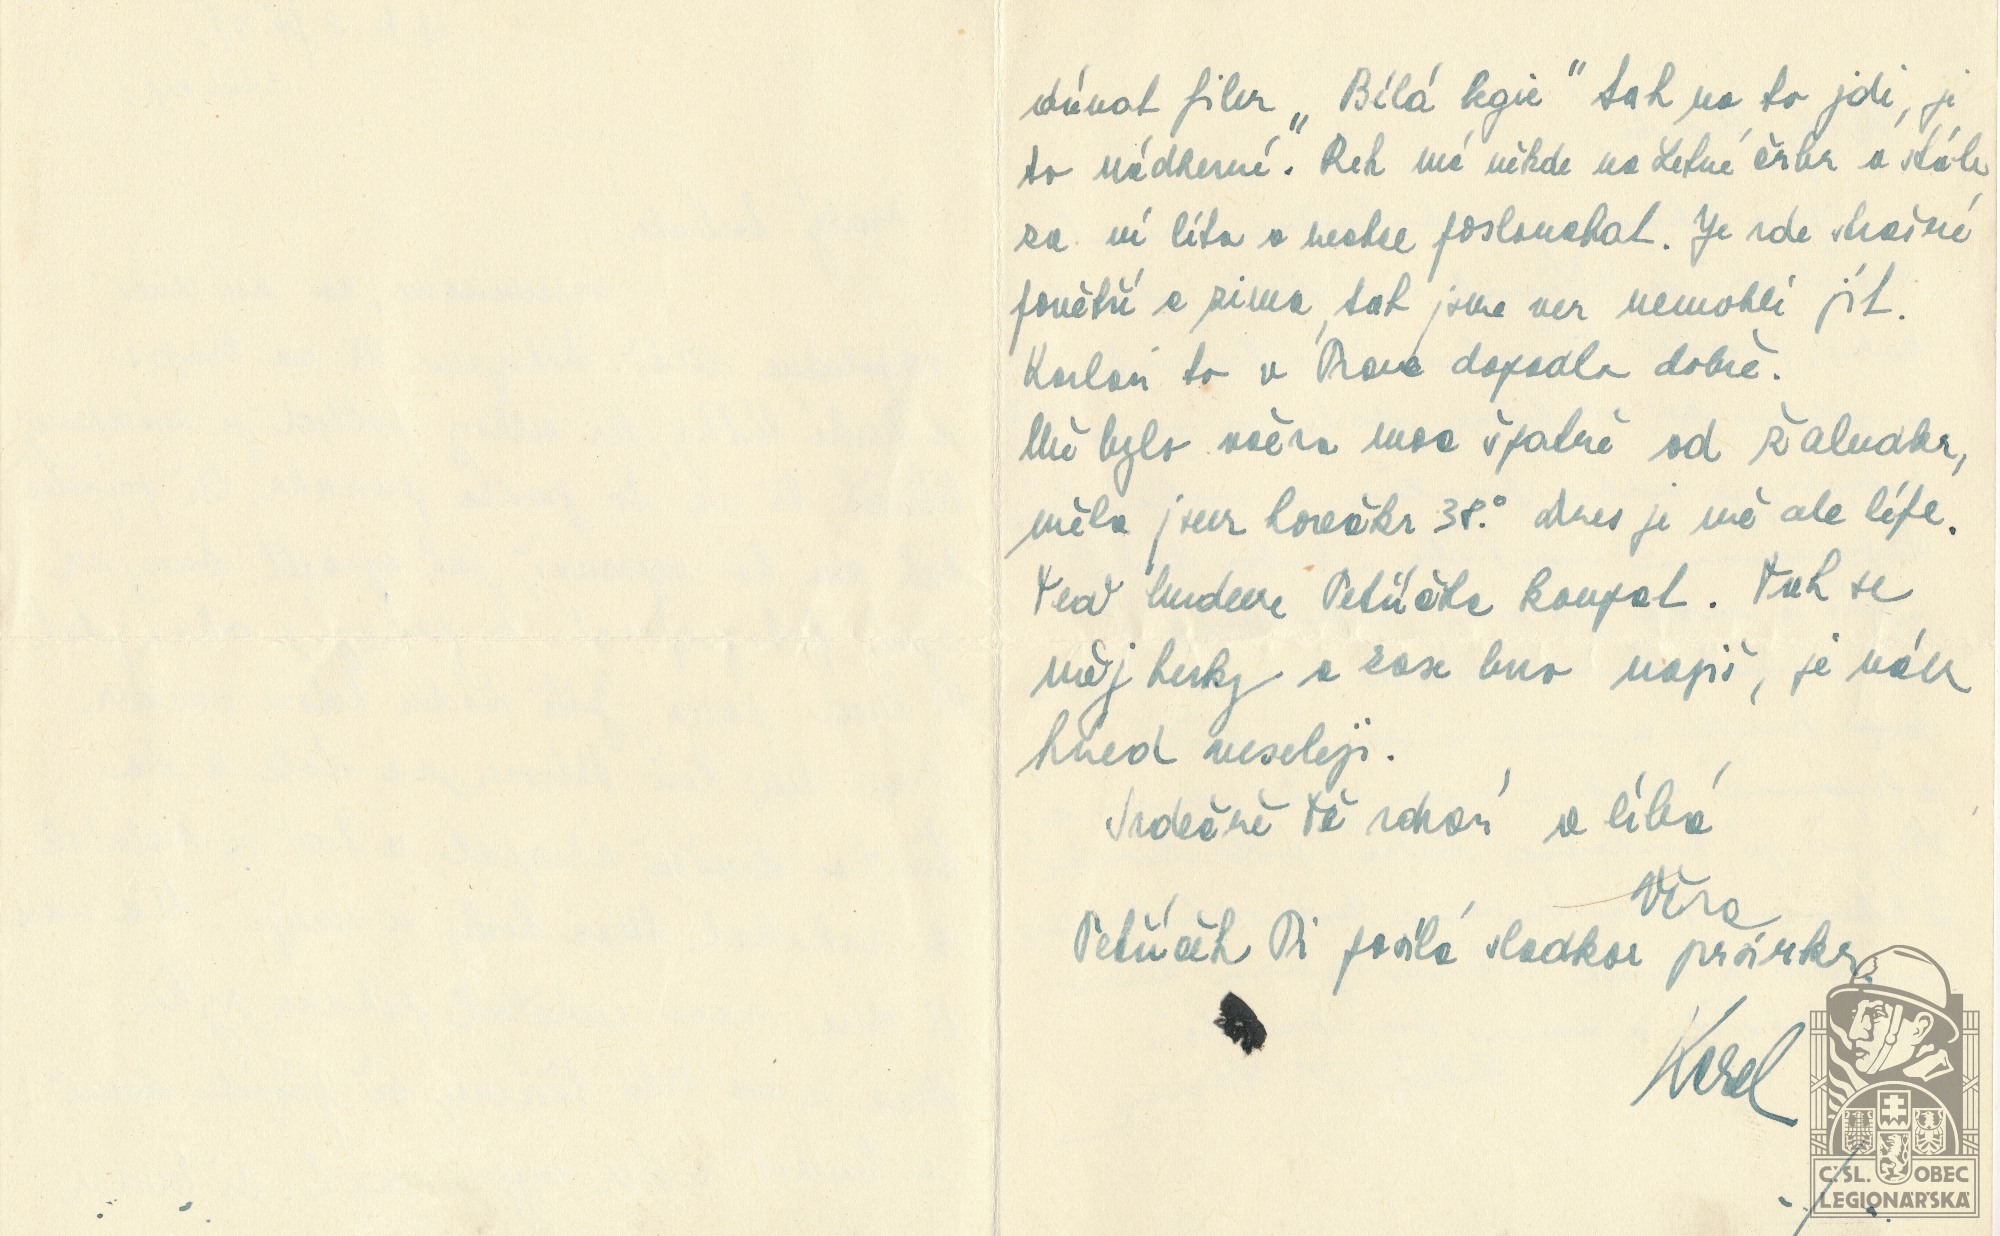 dávat film „Bílá legie" tak na to jdi, je
to nádherné". Rek má někde na Letné čubu a stále
za ní lítá a nechce poslouchat. Je zde strašné
povětří a zima, tak jsme ven nemohli jít.
Karlovi to v Praze dopadlo dobře.
Mě bylo včera moc špatně od žaludku,
měla jsem horečku 38.° dnes je mě ale lépe.
Teď budeme Petříčka koupat. Tak se
měj hezky a zase brzo napiš, je nám
hned veseleji.
Srdečně Tě zdraví a líbá
Věra
Petříček Ti posílá sladkou pusinku.
Karel
ČSL. OBEC
LEGIONÁŘSKÁ